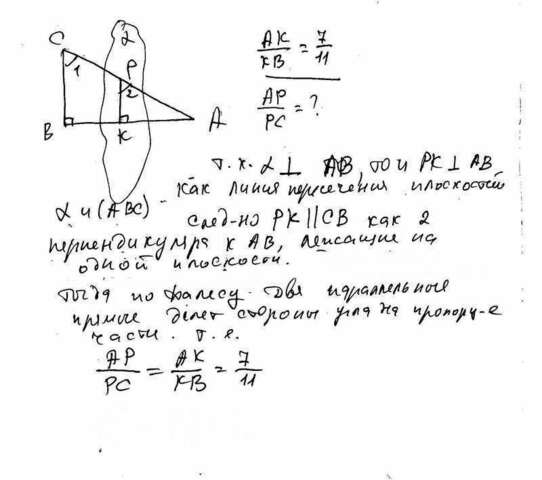 C
2
1
P
2
B
K
A
AK/KB = 7/11
AP/PC = ?
т.к. α ⊥ AB, то и PK ⊥ AB
как линия пересечения плоскостей
α и (ABC) - след-но PK || CB как 2
перпендикуляра к AB, лежащие на
одной плоскости.
Тогда по Фалесу две параллельные
прямые делят стороны угла на пропорц-е
части. т.е.
AP/PC = AK/KB = 7/11